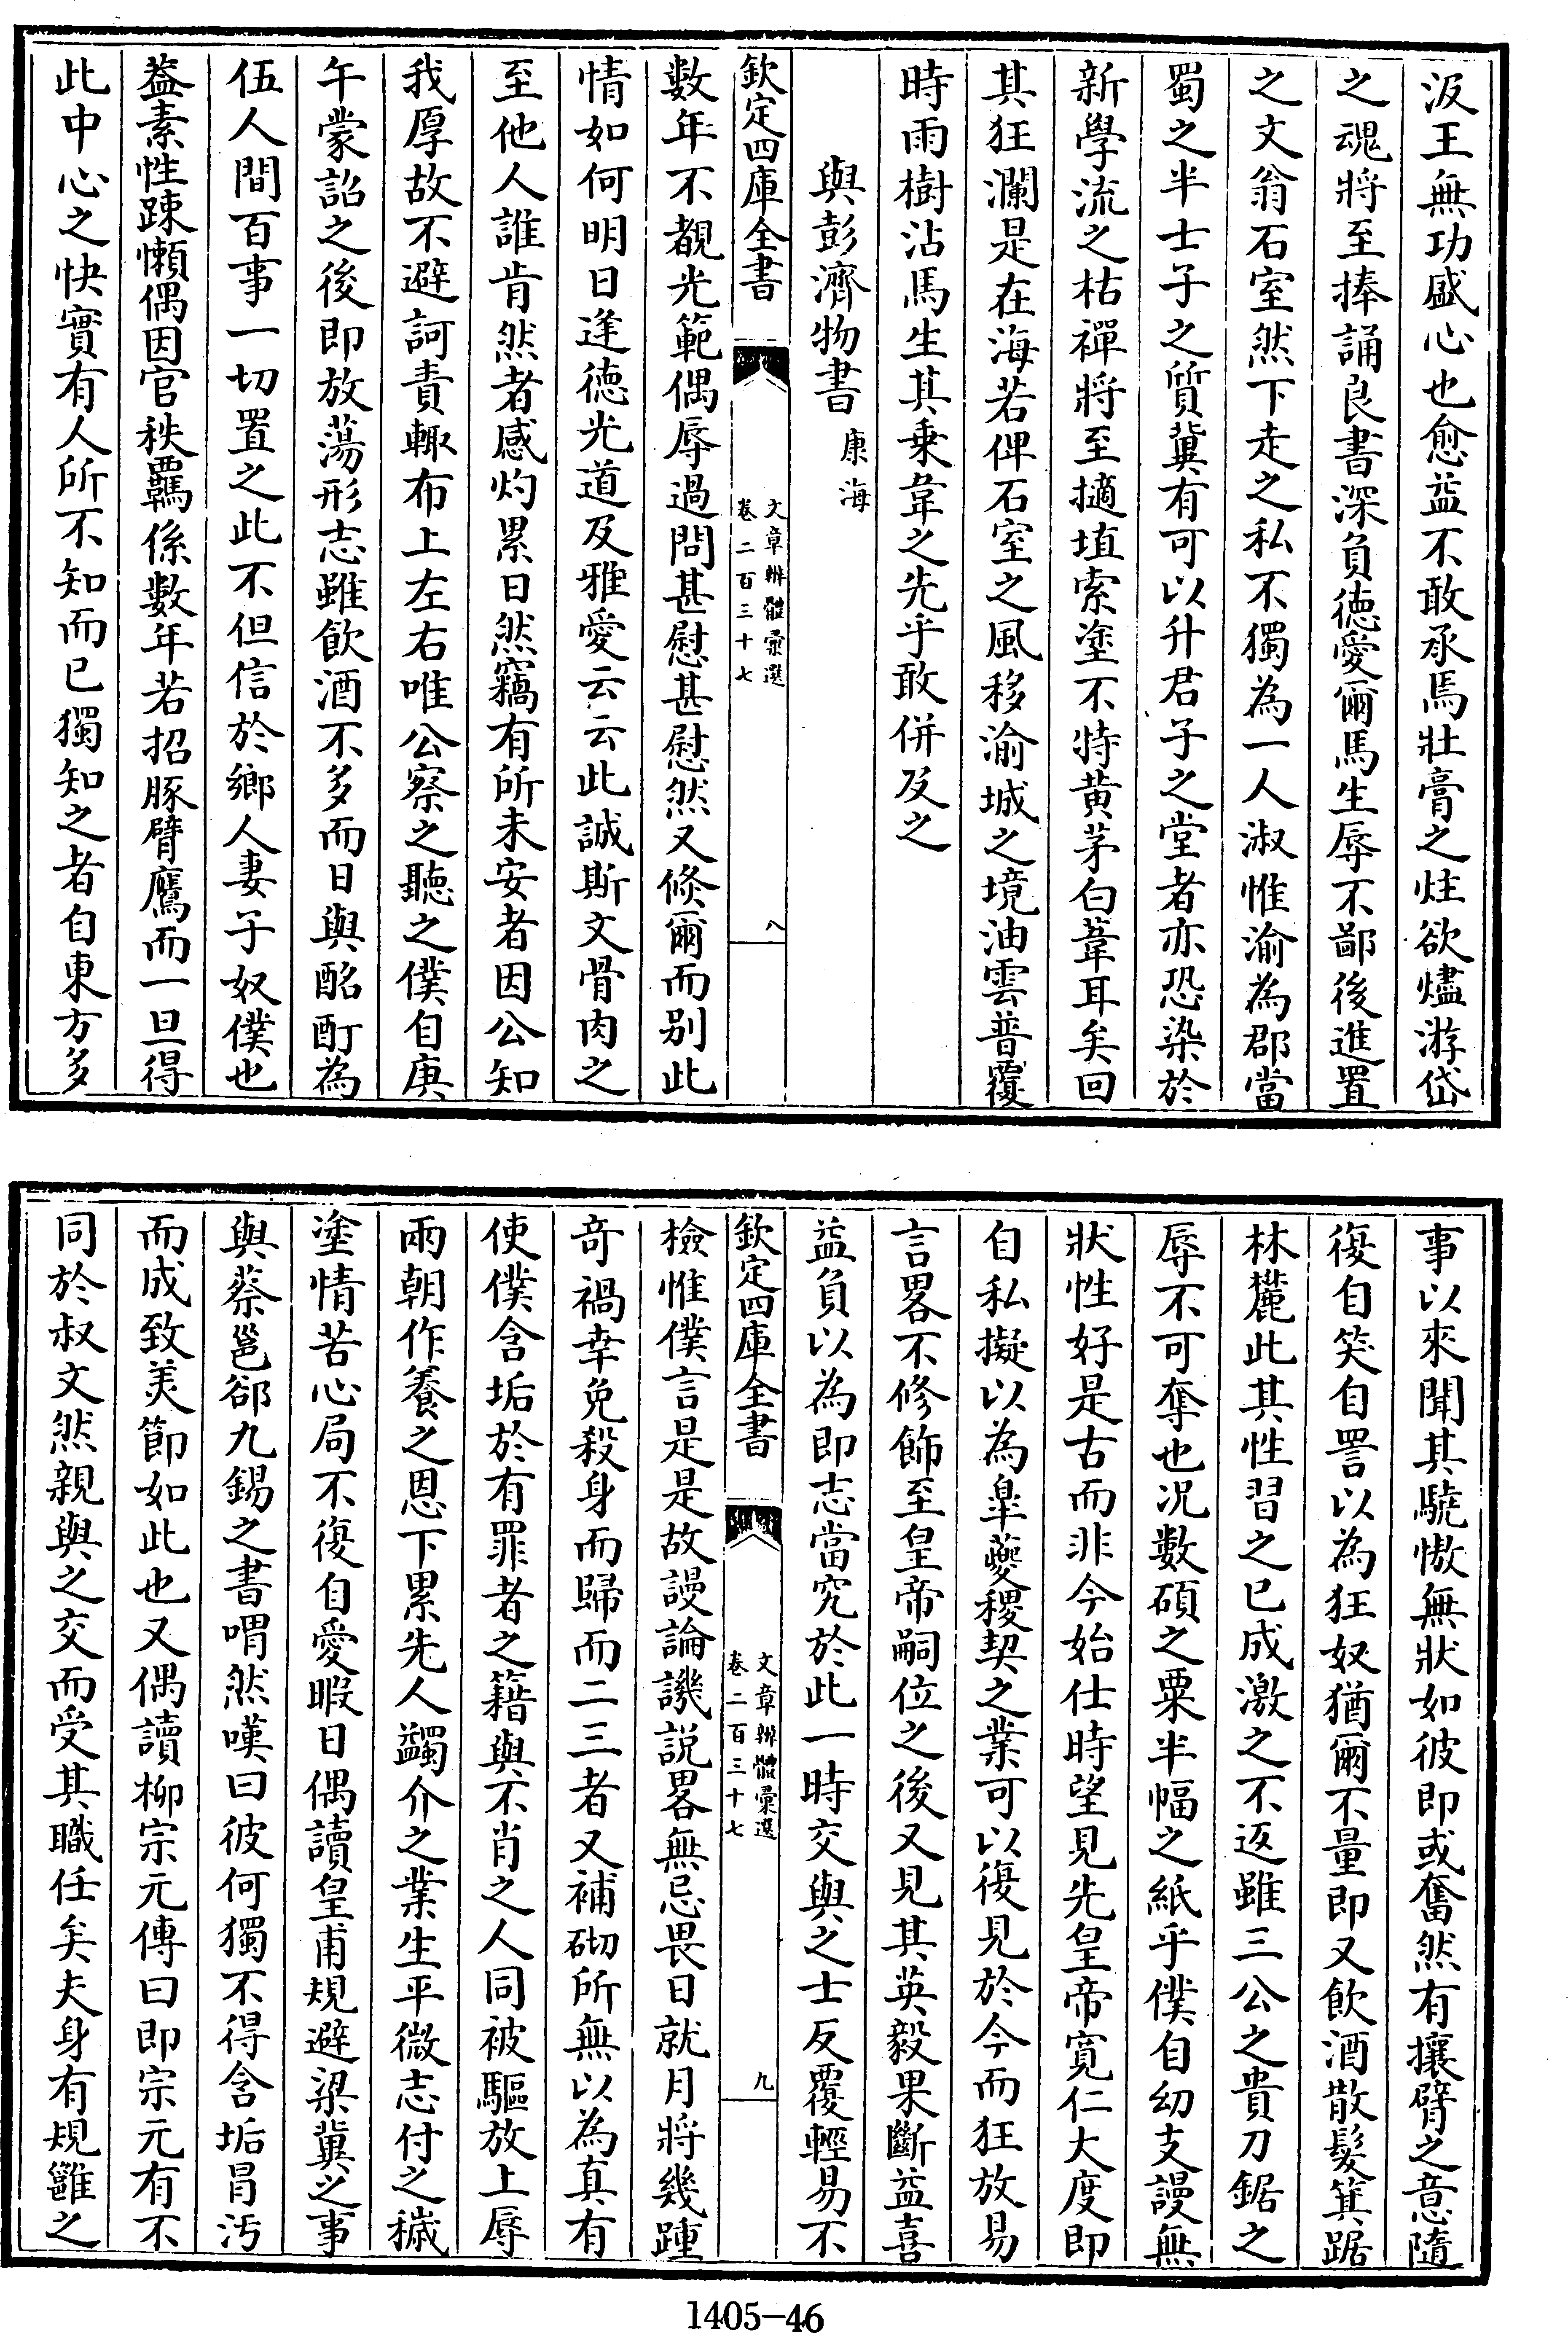 汲王無功盛心也愈益不敢承焉壯膏之炷欲燼游岱
之魂將至捧誦良書深負徳愛爾馬生辱不鄙後進置
之文翁石室然下走之私不獨為一人淑惟渝為郡當
蜀之半士子之質冀有可以升君子之堂者亦恐染於
新學流之枯禪將至擿埴索塗不特黄茅白葦耳矣回
其狂瀾是在海若俾石室之風移渝城之境油雲普覆
時雨樹沾馬生其乗韋之先乎敢併及之
與彭濟物書 康海
欽定四庫全書
文章辨體彙選
卷二百三十七
八
數年不覩光範偶辱過問甚慰甚慰然又倐爾而别此
情如何明日逢徳光道及雅愛云云此誠斯文骨肉之
至他人誰肯然者感灼累日然竊有所未安者因公知
我厚故不避訶責輙布上左右唯公察之聽之僕自庚
午蒙詔之後即放蕩形志雖飲酒不多而日與酩酊為
伍人間百事一切置之此不但信於鄉人妻子奴僕也
葢素性踈懶偶因官秩覊係數年若招豚臂鷹而一旦得
此中心之快實有人所不知而已獨知之者自東方多
事以來聞其驍慠無狀如彼即或奮然有攘臂之意隨
復自笑自詈以為狂奴猶爾不量即又飲酒散髮箕踞
林麓此其性習之已成激之不返雖三公之貴刀鋸之
辱不可奪也况數碩之粟半幅之紙乎僕自幼支謾無
狀性好是古而非今始仕時望見先皇帝寛仁大度即
自私擬以為臯夔稷契之業可以復見於今而狂放易
言畧不修飾至皇帝嗣位之後又見其英毅果斷益喜
益負以為即志當究於此一時交與之士反覆輕易不
欽定四庫全書
文章辨體彙選
卷二百三十七
九
檢惟僕言是是故謾論譏説畧無忌畏日就月將幾踵
竒禍幸免殺身而歸而二三者又補砌所無以為真有
使僕含垢於有罪者之籍與不肖之人同被驅放上辱
兩朝作養之恩下累先人蠲介之業生平微志付之穢
塗情苦心局不復自愛暇日偶讀皇甫規避梁冀之事
與蔡邕郤九錫之書喟然嘆曰彼何獨不得含垢冒汚
而成致美節如此也又偶讀柳宗元傳曰即宗元有不
同於叔文然親與之交而受其職任矣夫身有規雝之
1405-46